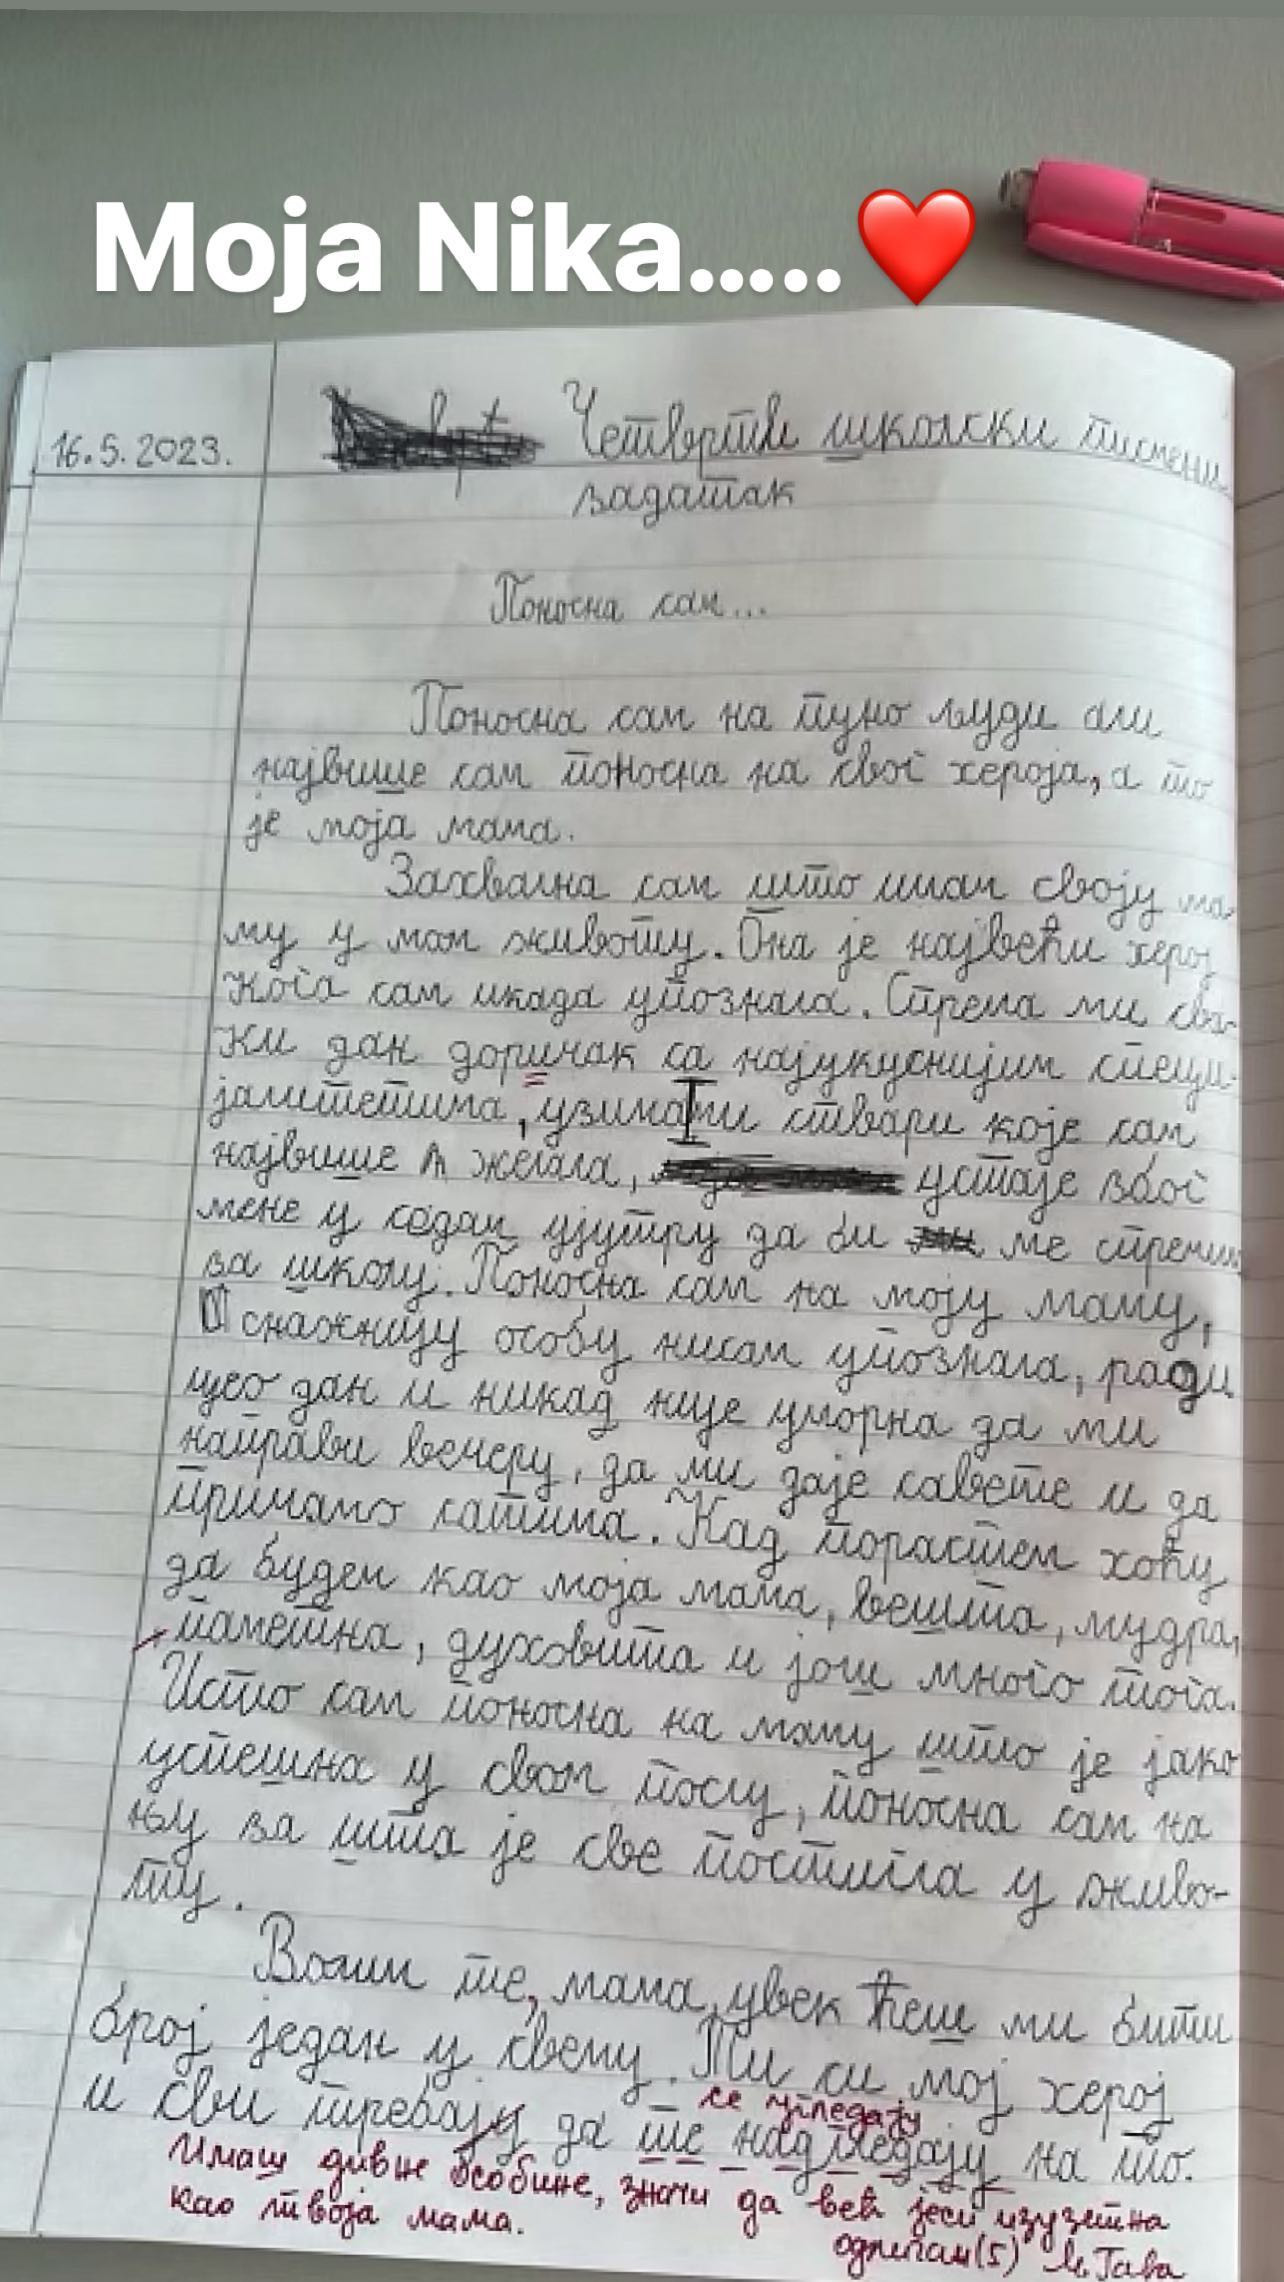 Moja Nika.....❤️
16.5.2023.
Четврти школски писмени
задатак
Поносна сам...
Поносна сам на пуно људи али
највише сам поносна на свог хероја, а то
је моја мама.
Захвална сам што имам своју ма-
му у мом животу. Она је највећи херој
кога сам икада упознала. Спрема ми сва-
ки дан доричак са најукуснијим специ-
јалитетима, узима ми ствари које сам
највише жељела, устаје због
мене у седам ујутру да би ме спреми
за школу. Поносна сам на моју маму,
снажнију особу нисам упознала, ради
цео дан и никад није уморна да ми
направи вечеру, да ми даје савете и да
причамо сатима. Кад порастем хоћу
да будем као моја мама, вешта, мудра,
паметна, духовита и још много тога.
Исто сам поносна на маму што је јако
успешна у свом послу, поносна сам на
њу за шта је све постигла у живо-
ту.
Волим те, мама, увек ћеш ми бити
број један у свему. Ти си мој херој
се угледају
и сви требају да те надгледају на то.
Имаш дивне особине, значи да већ јеси изузетна
као твоја мама.
одличан (5)